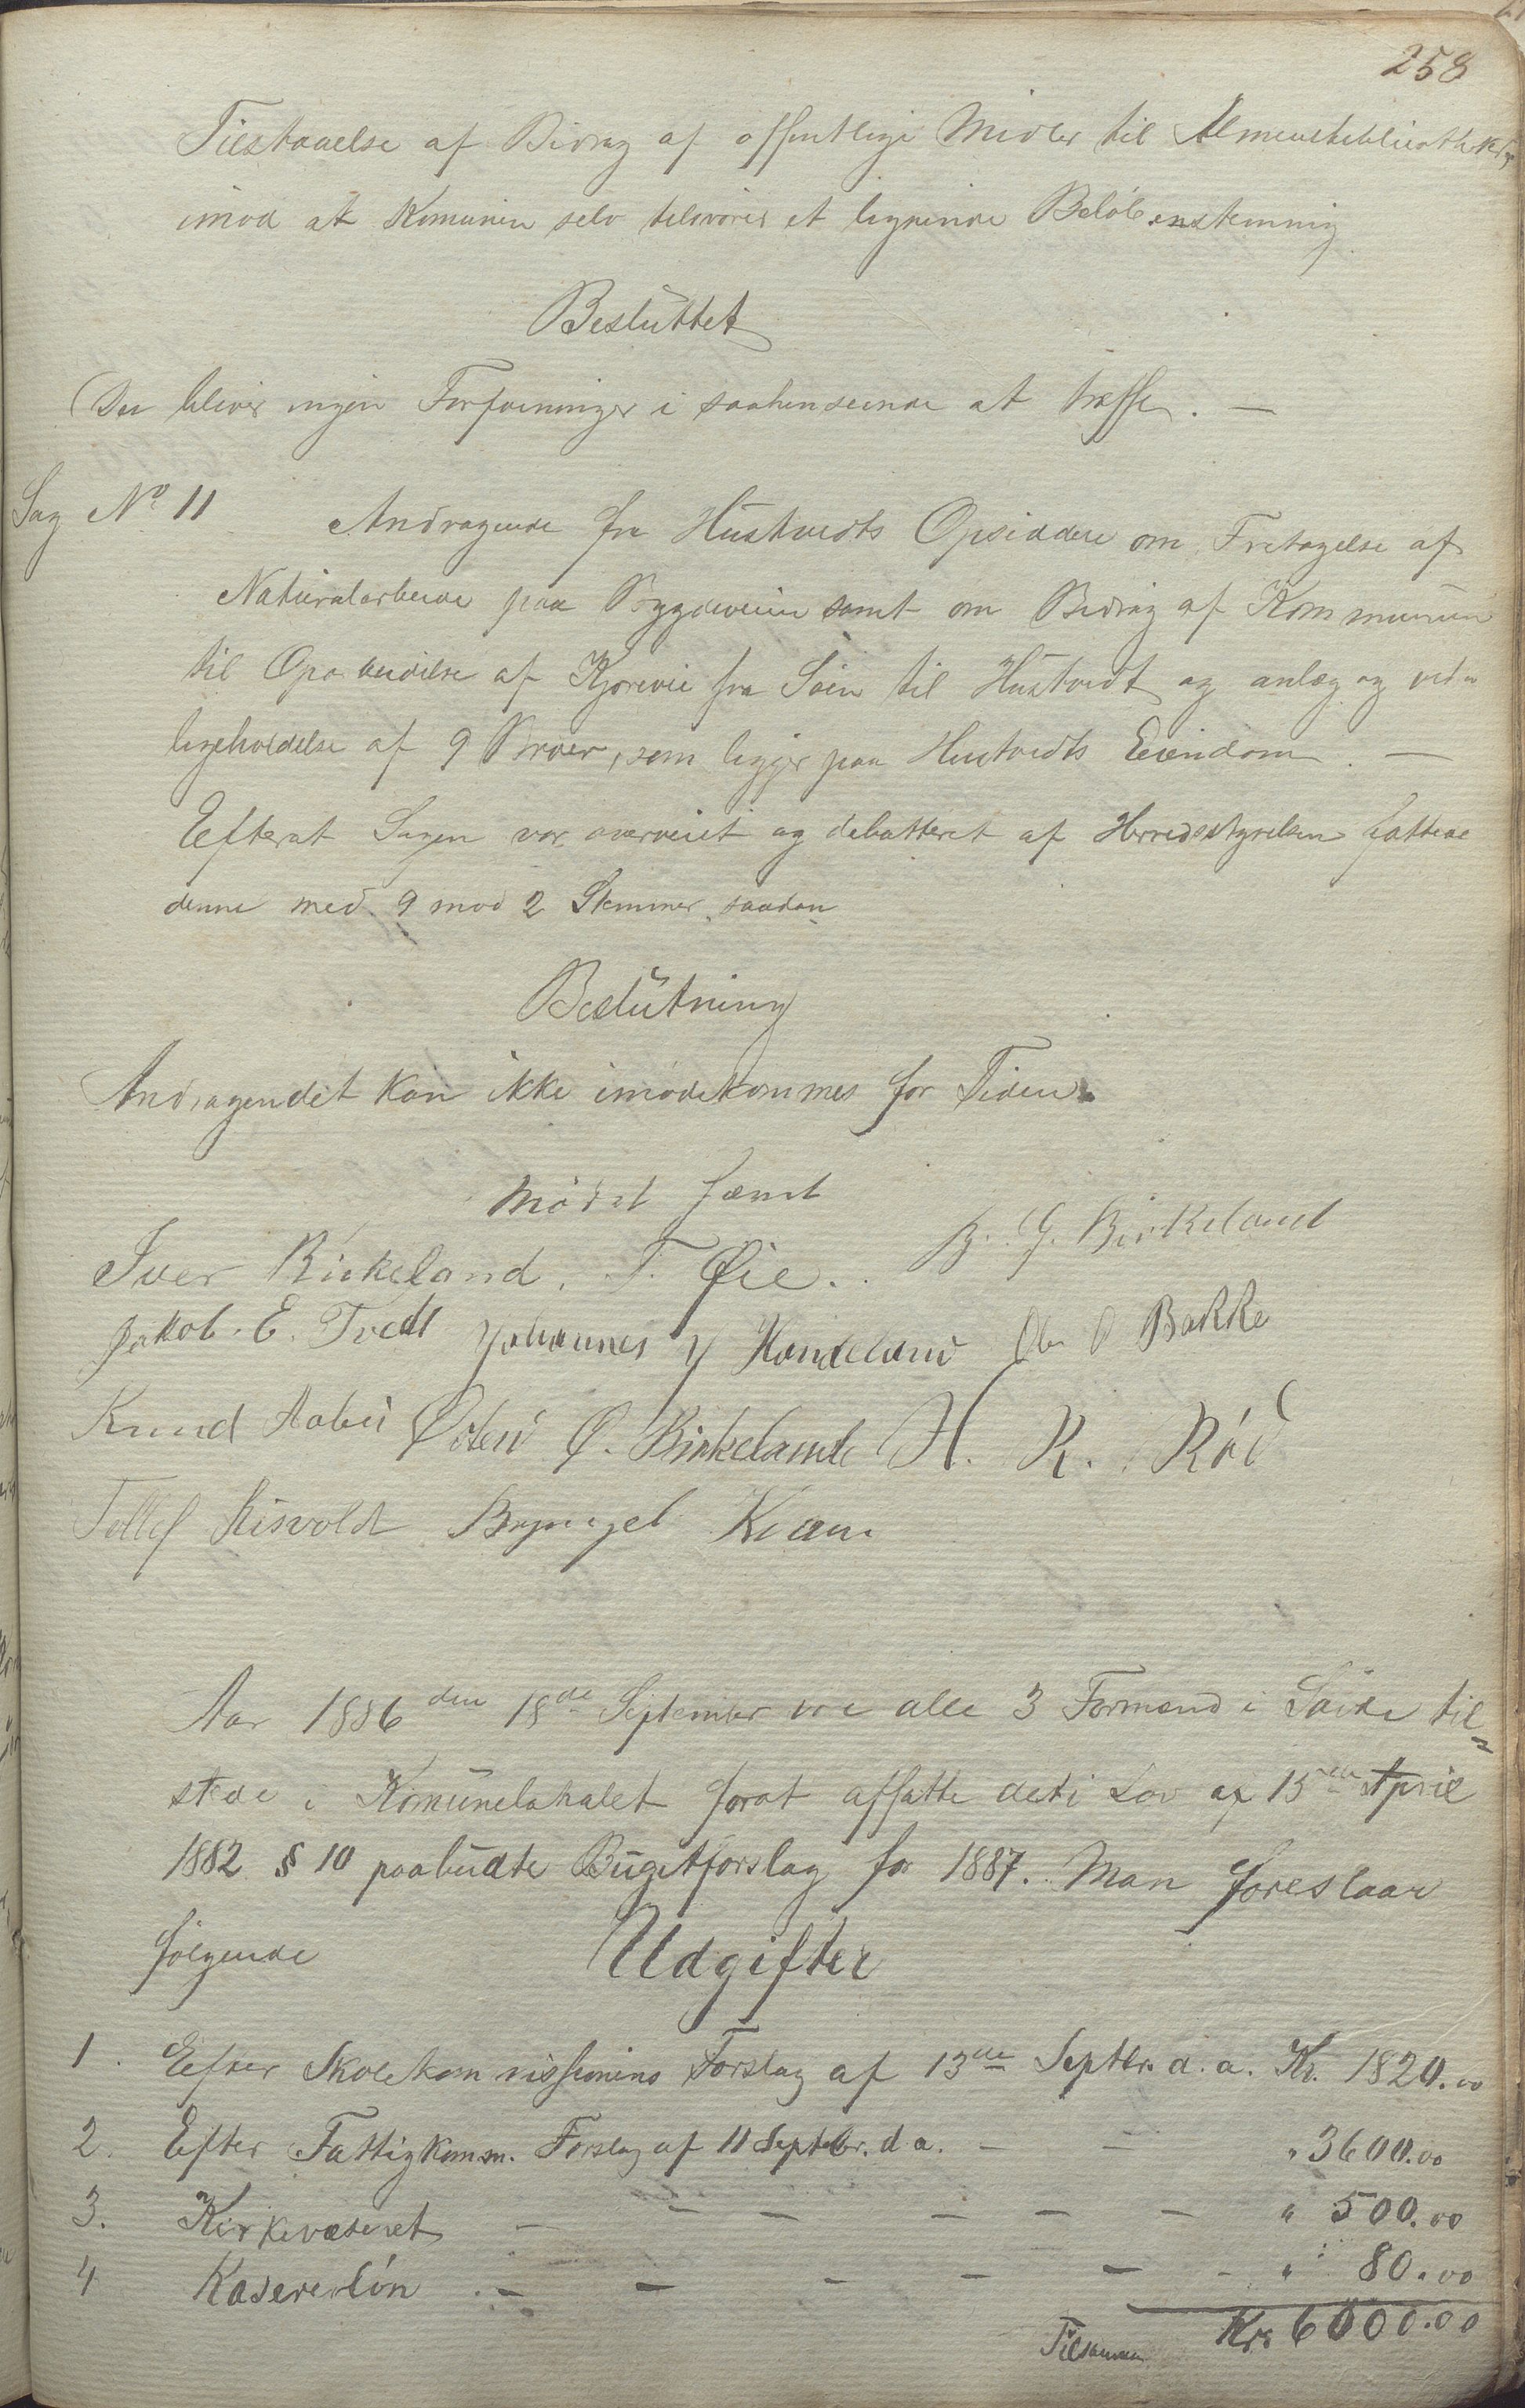 258
Tilstaaelse af Bidrag af offentlige Midler til Almuebibliotheket
imod at Komunen selv tilsvarer et lignende Beløb enstemmig
Besluttet
Der bliver ingen Forføininger i saahenseende at træffe. —
Sag No 11 Andragende fra Hustvedts Opsiddere om Fretagelse af
Naturalarbeide paa Bygdeveien samt om Bidrag af Kommunen
til Oparbeidelse af Kjørevei fra Søen til Hustvedt og anlæg og ved-
ligeholdelse af 9 Broer, som ligger paa Hustvedts Eiendom. —
Efterat Sagen var overveiet og debatteret af Herredsstyrelsen fattede
denne med 9 mod 2 Stemmer saadan
Beslutning
Andragendet kan ikke imødekommes for Tiden.
Mødet hævet
Iver Birkeland. T. Øie. B. G. Birkeland
Jakob. E. Tvedt Johannes J Handeland Ole O Bakke
Knud Aabø Østen Ø. Birkeland H. K. Rød
Tellef Risvoldt Brynigel Kvam
Aar 1886 den 18de September vre alle 3 Formænd i Saide til=
stede i Komunelokalet forat affatte det i Lov af 15de April
1882 § 10 paabudte Bugetforslag for 1887. Man foreslaar
følgende Udgifter
1. Efter Skolekommissionens Forslag af 13de Septbr. d. a. Kr. 1820.00
2. Efter Fattigkomm. Forslag af 11 Septebr. d a. — — " 3600.00
3. Kirkevæsenet — — — — — — " 500.00
4 Kasererløn — — — — — - " 80.00
Tilsammen Kr. 6000.00